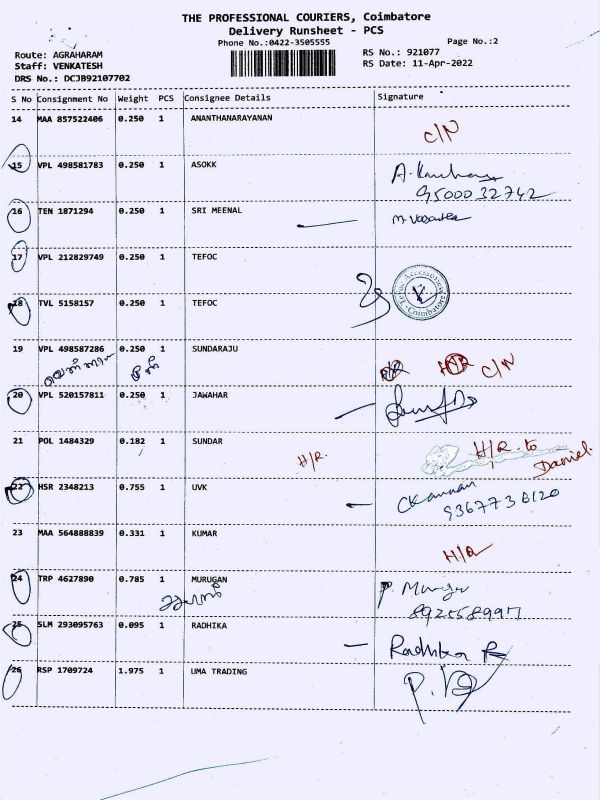 THE PROFESSIONAL COURIERS, Coimbatore
Delivery Runsheet - PCS
Phone No.:0422-3505555 Page No.:2
Route: AGRAHARAM RS No.: 921077
Staff: VENKATESH RS Date: 11-Apr-2022
DRS No.: DCJB92107702
S No Consignment No Weight PCS Consignee Details Signature
14 MAA 857522406 0.250 1 ANANTHANARAYANAN
C/N
15 VPL 498581783 0.250 1 ASOKK
9500032742
16 TEN 1871294 0.250 1 SRI MEENAL
17 VPL 212829749 0.250 1 TEFOC
Tefoc Accessories
Coimbatore
18 TVL 5158157 0.250 1 TEFOC
19 VPL 498587286 0.250 1 SUNDARAJU
C/N
20 VPL 520157811 0.250 1 JAWAHAR
21 POL 1484329 0.182 1 SUNDAR
H/R. H/R. to
Daniel.
22 HSR 2348213 0.755 1 UVK
23 MAA 564888839 0.331 1 KUMAR
H/R
24 TRP 4627890 0.785 1 MURUGAN
25 SLM 293095763 0.095 1 RADHIKA
Radhika R
26 RSP 1709724 1.975 1 UMA TRADING